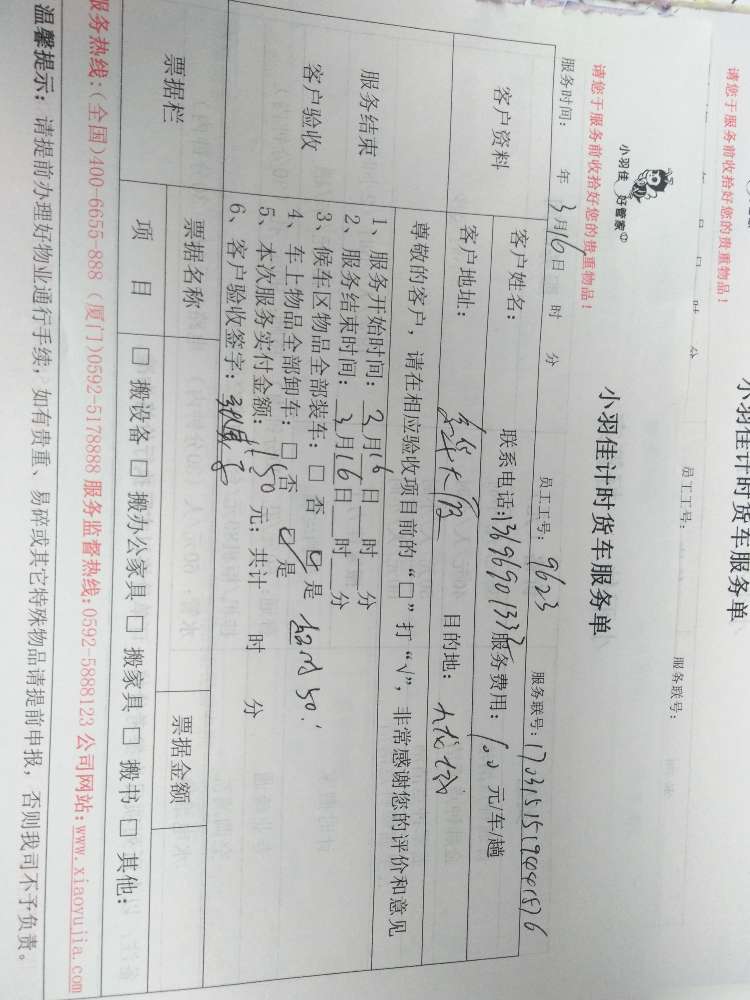 请您于服务前收拾好您的贵重物品!
年 月 日 时 分 员工工号: 服务联号:
小羽佳计时货车服务单
请您于服务前收拾好您的贵重物品!
小羽佳 好管家
小羽佳计时货车服务单
服务时间: 年 3月16日 时 分 员工工号: 9623 服务联号:
客户资料
客户姓名: 联系电话: 服务费用: 100 元/车/趟
客户地址: 目的地:
服务结束客户验收
尊敬的客户,请在相应验收项目前的“□”打“√”,非常感谢您的评价和意见
1、服务开始时间: 3月16日 时 分
2、服务结束时间: 3月16日 时 分
3、候车区物品全部装车: □ 否 ☑ 是
4、车上物品全部卸车: □ 否 ☑ 是 超时50.
5、本次服务实付金额: 150 元;共计 时 分
6、客户验收签字:
票据栏
票据名称 票据金额
项 目 □ 搬设备 □ 搬办公家具 □ 搬家具 □ 搬书 □ 其他:
服务热线:(全国)400-6655-888 (厦门)0592-5178888 服务监督热线:0592-5888123 公司网站:www.xiaoyujia.com
温馨提示: 请提前办理好物业通行手续,如有贵重、易碎或其它特殊物品请提前申报,否则我司不予负责。